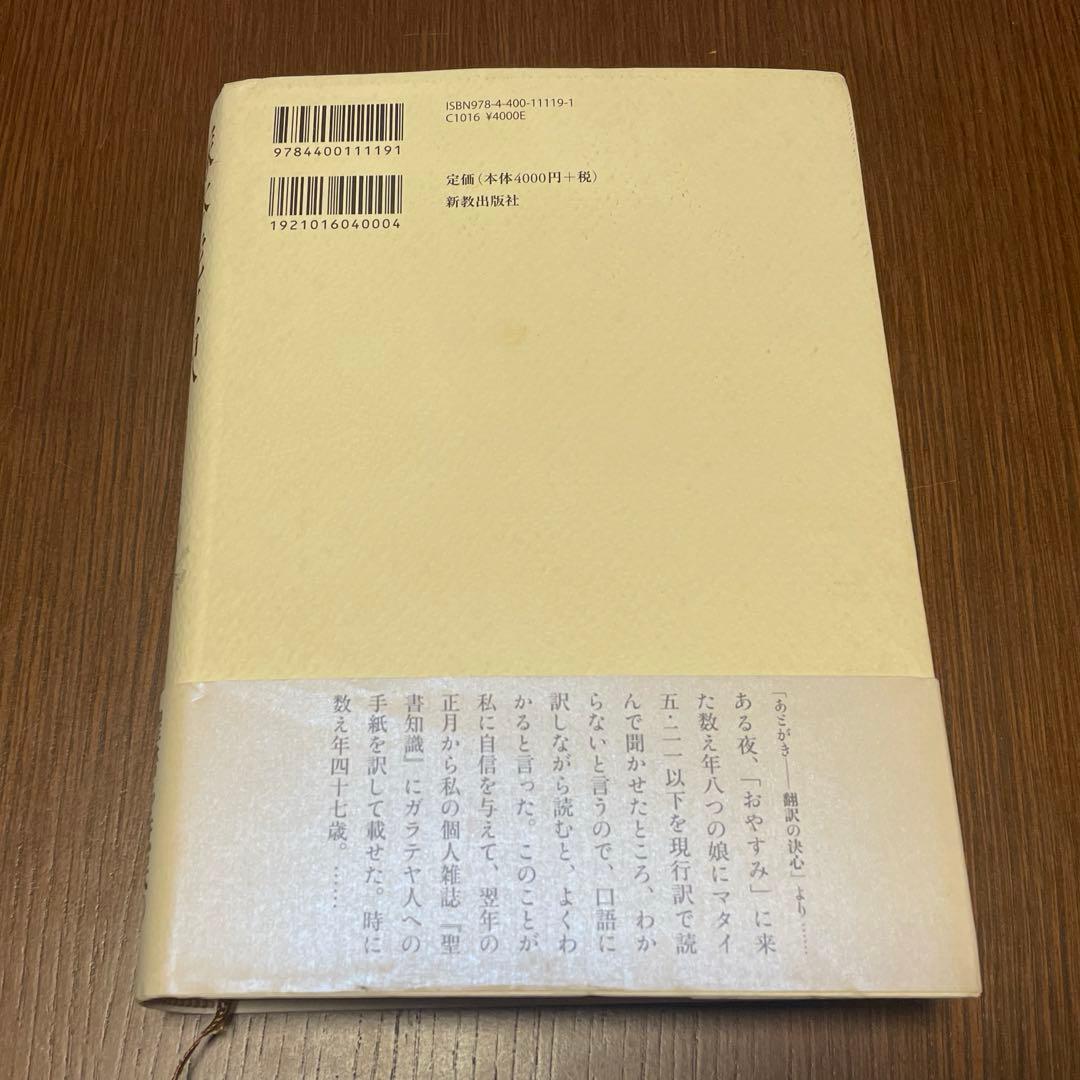 ISBN978-4-400-11119-1
C1016 ¥4000E
9784400111191
定価(本体4000円+税)
新教出版社
1921016040004
「あとがき――翻訳の決心」より……
ある夜、「おやすみ」に来
た数え年八つの娘にマタイ
五・二一以下を現行訳で読
んで聞かせたところ、わか
らないと言うので、口語に
訳しながら読むと、よくわ
かると言った。このことが
私に自信を与えて、翌年の
正月から私の個人雑誌『聖
書知識』にガラテヤ人への
手紙を訳して載せた。時に
数え年四十七歳。……